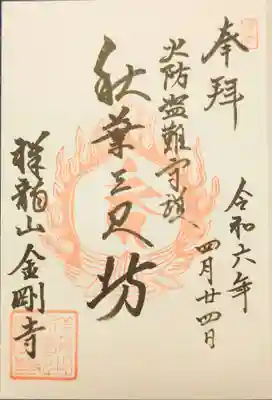 奉拝
令和六年
四月廿四日
火防盗難守護
秋葉三尺坊
祥龍山 金剛寺